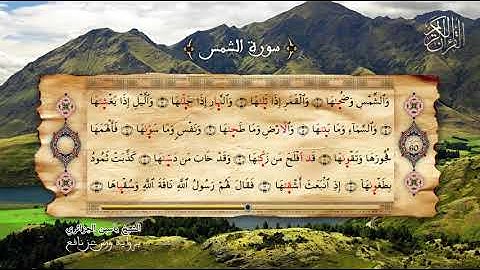 سورة الشمس
القرآن الكريم
وَالشَّمْسِ وَضُحَىٰهَا وَالْقَمَرِ إِذَا تَلَىٰهَا وَالنَّهَارِ إِذَا جَلَّىٰهَا وَالَّيْلِ إِذَا يَغْشَىٰهَا
وَالسَّمَآءِ وَمَا بَنَىٰهَا وَالْأَرْضِ وَمَا طَحَىٰهَا وَنَفْسٍ وَمَا سَوَّىٰهَا فَأَلْهَمَهَا
فُجُورَهَا وَتَقْوَىٰهَا قَدْ أَفْلَحَ مَن زَكَّىٰهَا وَقَدْ خَابَ مَن دَسَّىٰهَا كَذَّبَتْ ثَمُودُ
بِطَغْوَىٰهَا إِذِ انۢبَعَثَ أَشْقَىٰهَا فَقَالَ لَهُمْ رَسُولُ اللَّهِ نَاقَةَ اللَّهِ وَسُقْيَٰهَا
60
الشيخ ياسين الجزائري
برواية ورش عن نافع